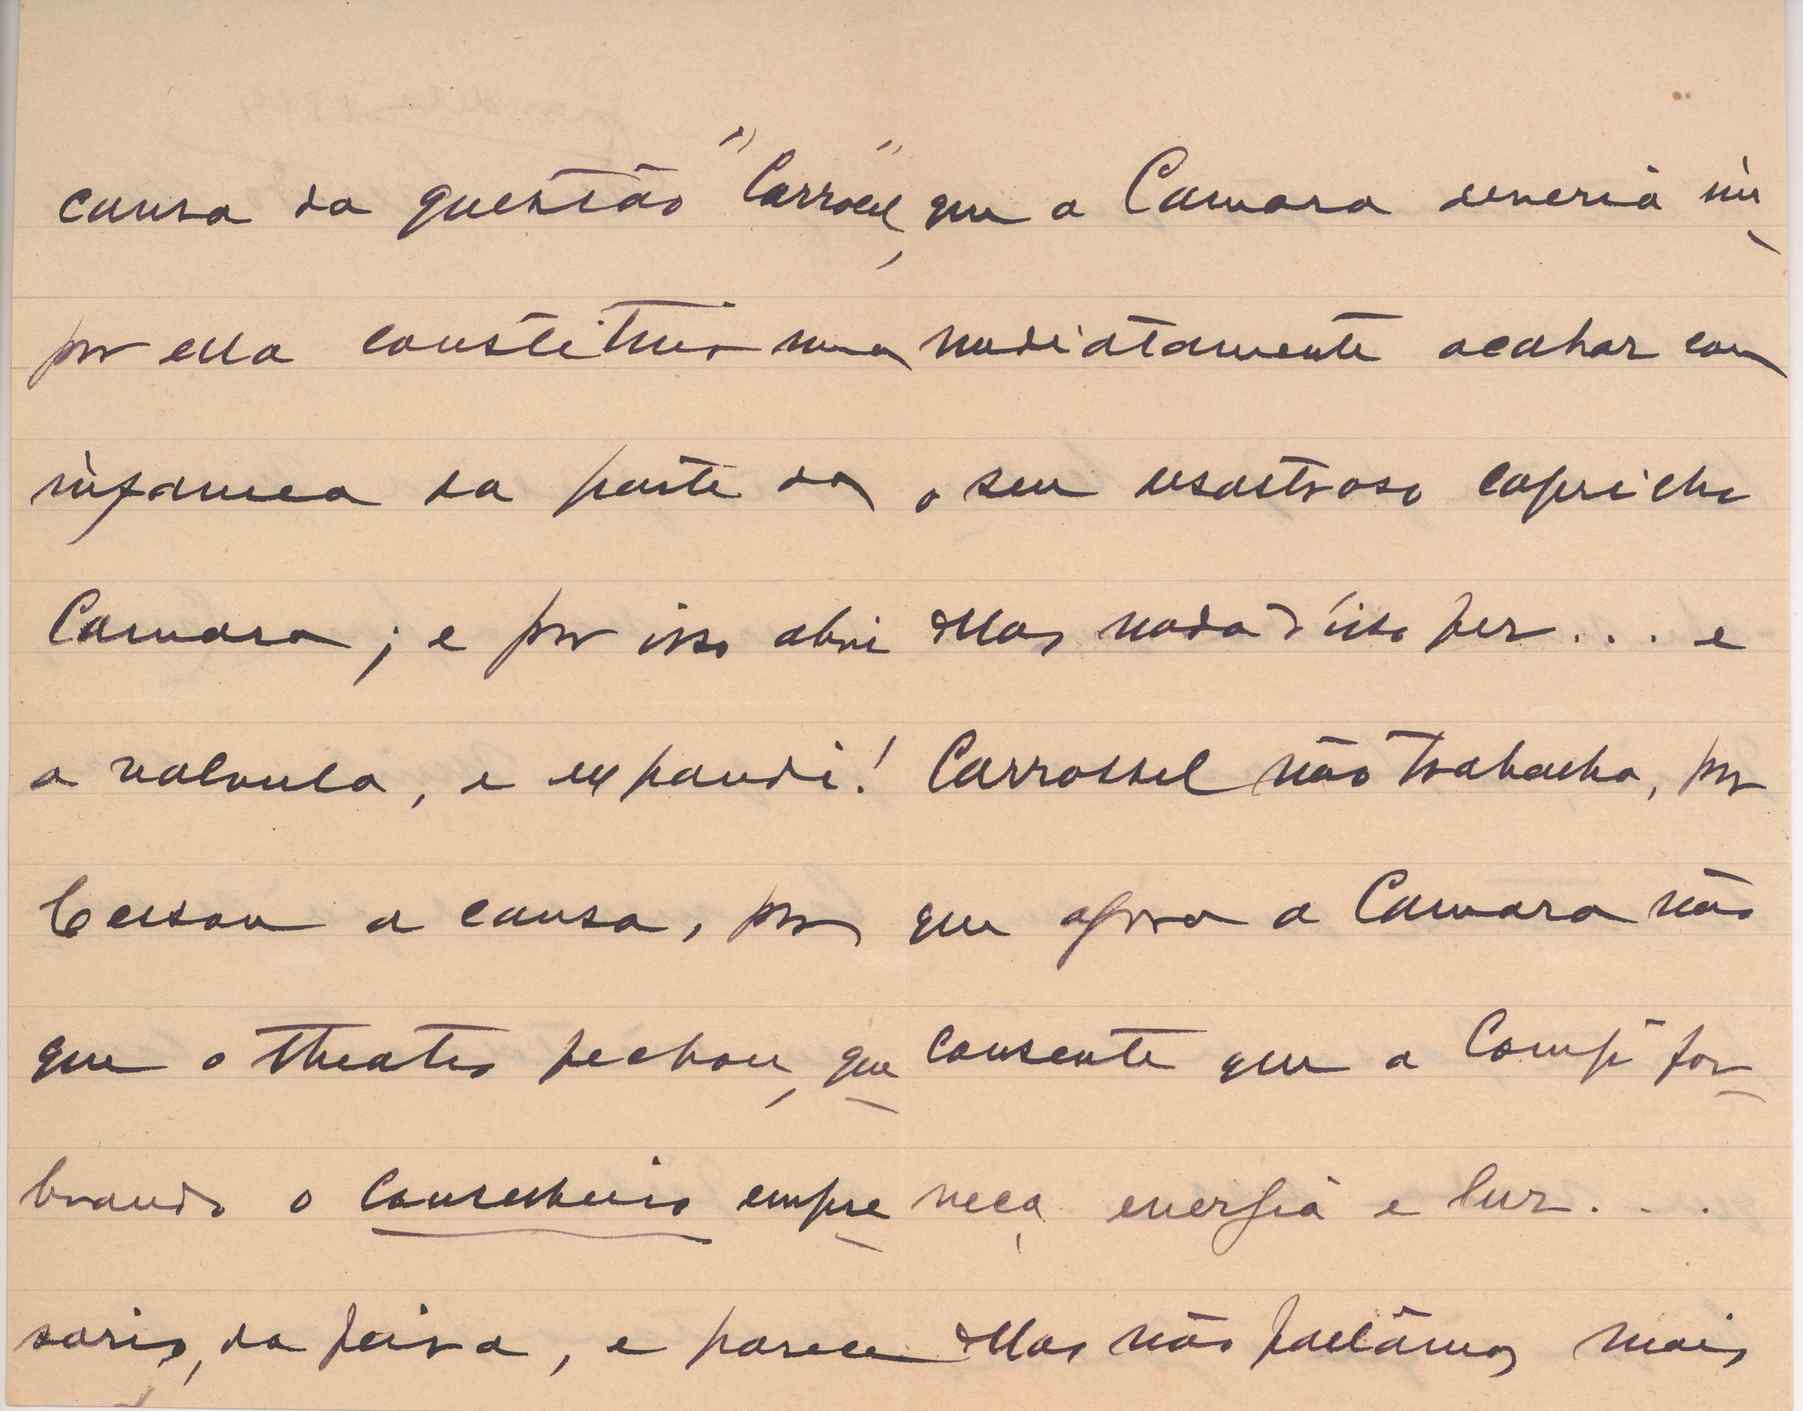 causa da questão "Carrocel",
por ella constituir uma
infamea da parte da
Camara; e por isso abri
a valvula, e expandi!
Cessou a causa, por
que o theatro fechou, que
brando o Conselheiro empre
sario, da feira, e parece
que a Camara deveria im
mediatamente acabar com
o seu desastroso capricho
Mas nada d'isto fez... e
Carrossel não trabalha, por
que agora a Camara não
consente que a Compª for
neça energia e luz...
Mas não faclâmos mais